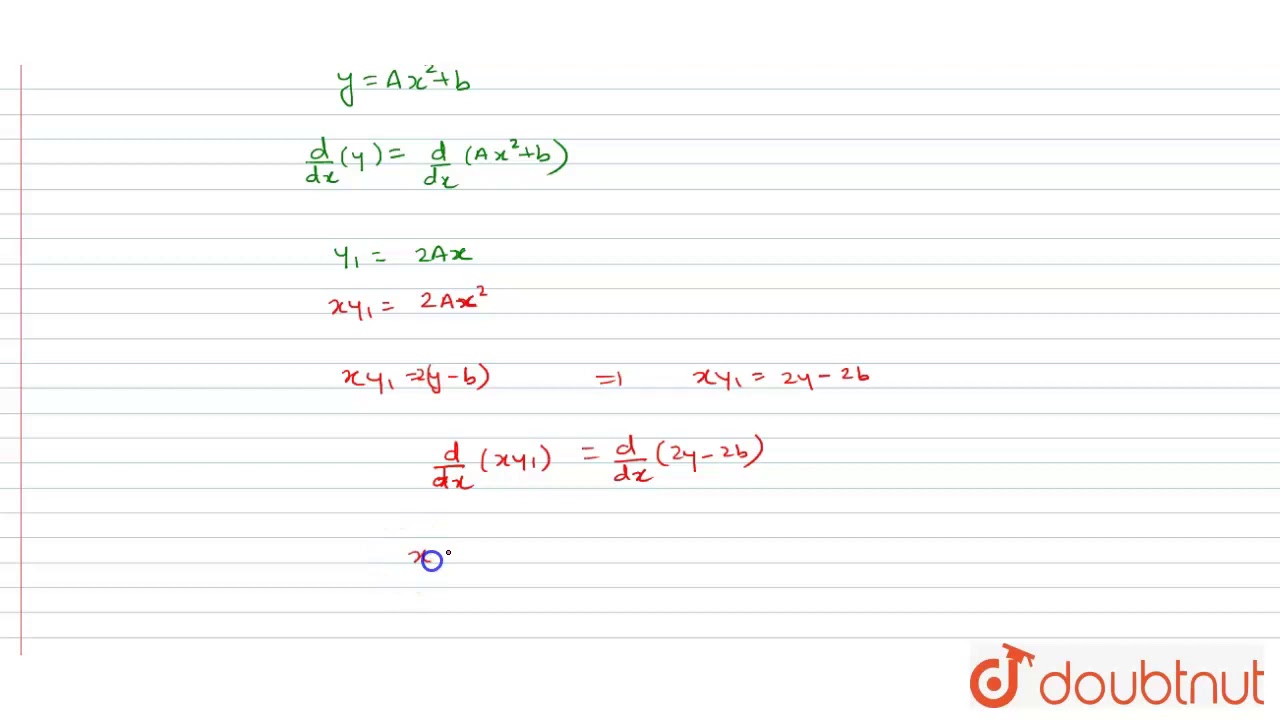 y = Ax²+b
d/dx (y) = d/dx (Ax²+b)
y₁ = 2Ax
xy₁ = 2Ax²
xy₁ = 2(y-b) ⇒ xy₁ = 2y - 2b
d/dx (xy₁) = d/dx (2y - 2b)
x
doubtnut